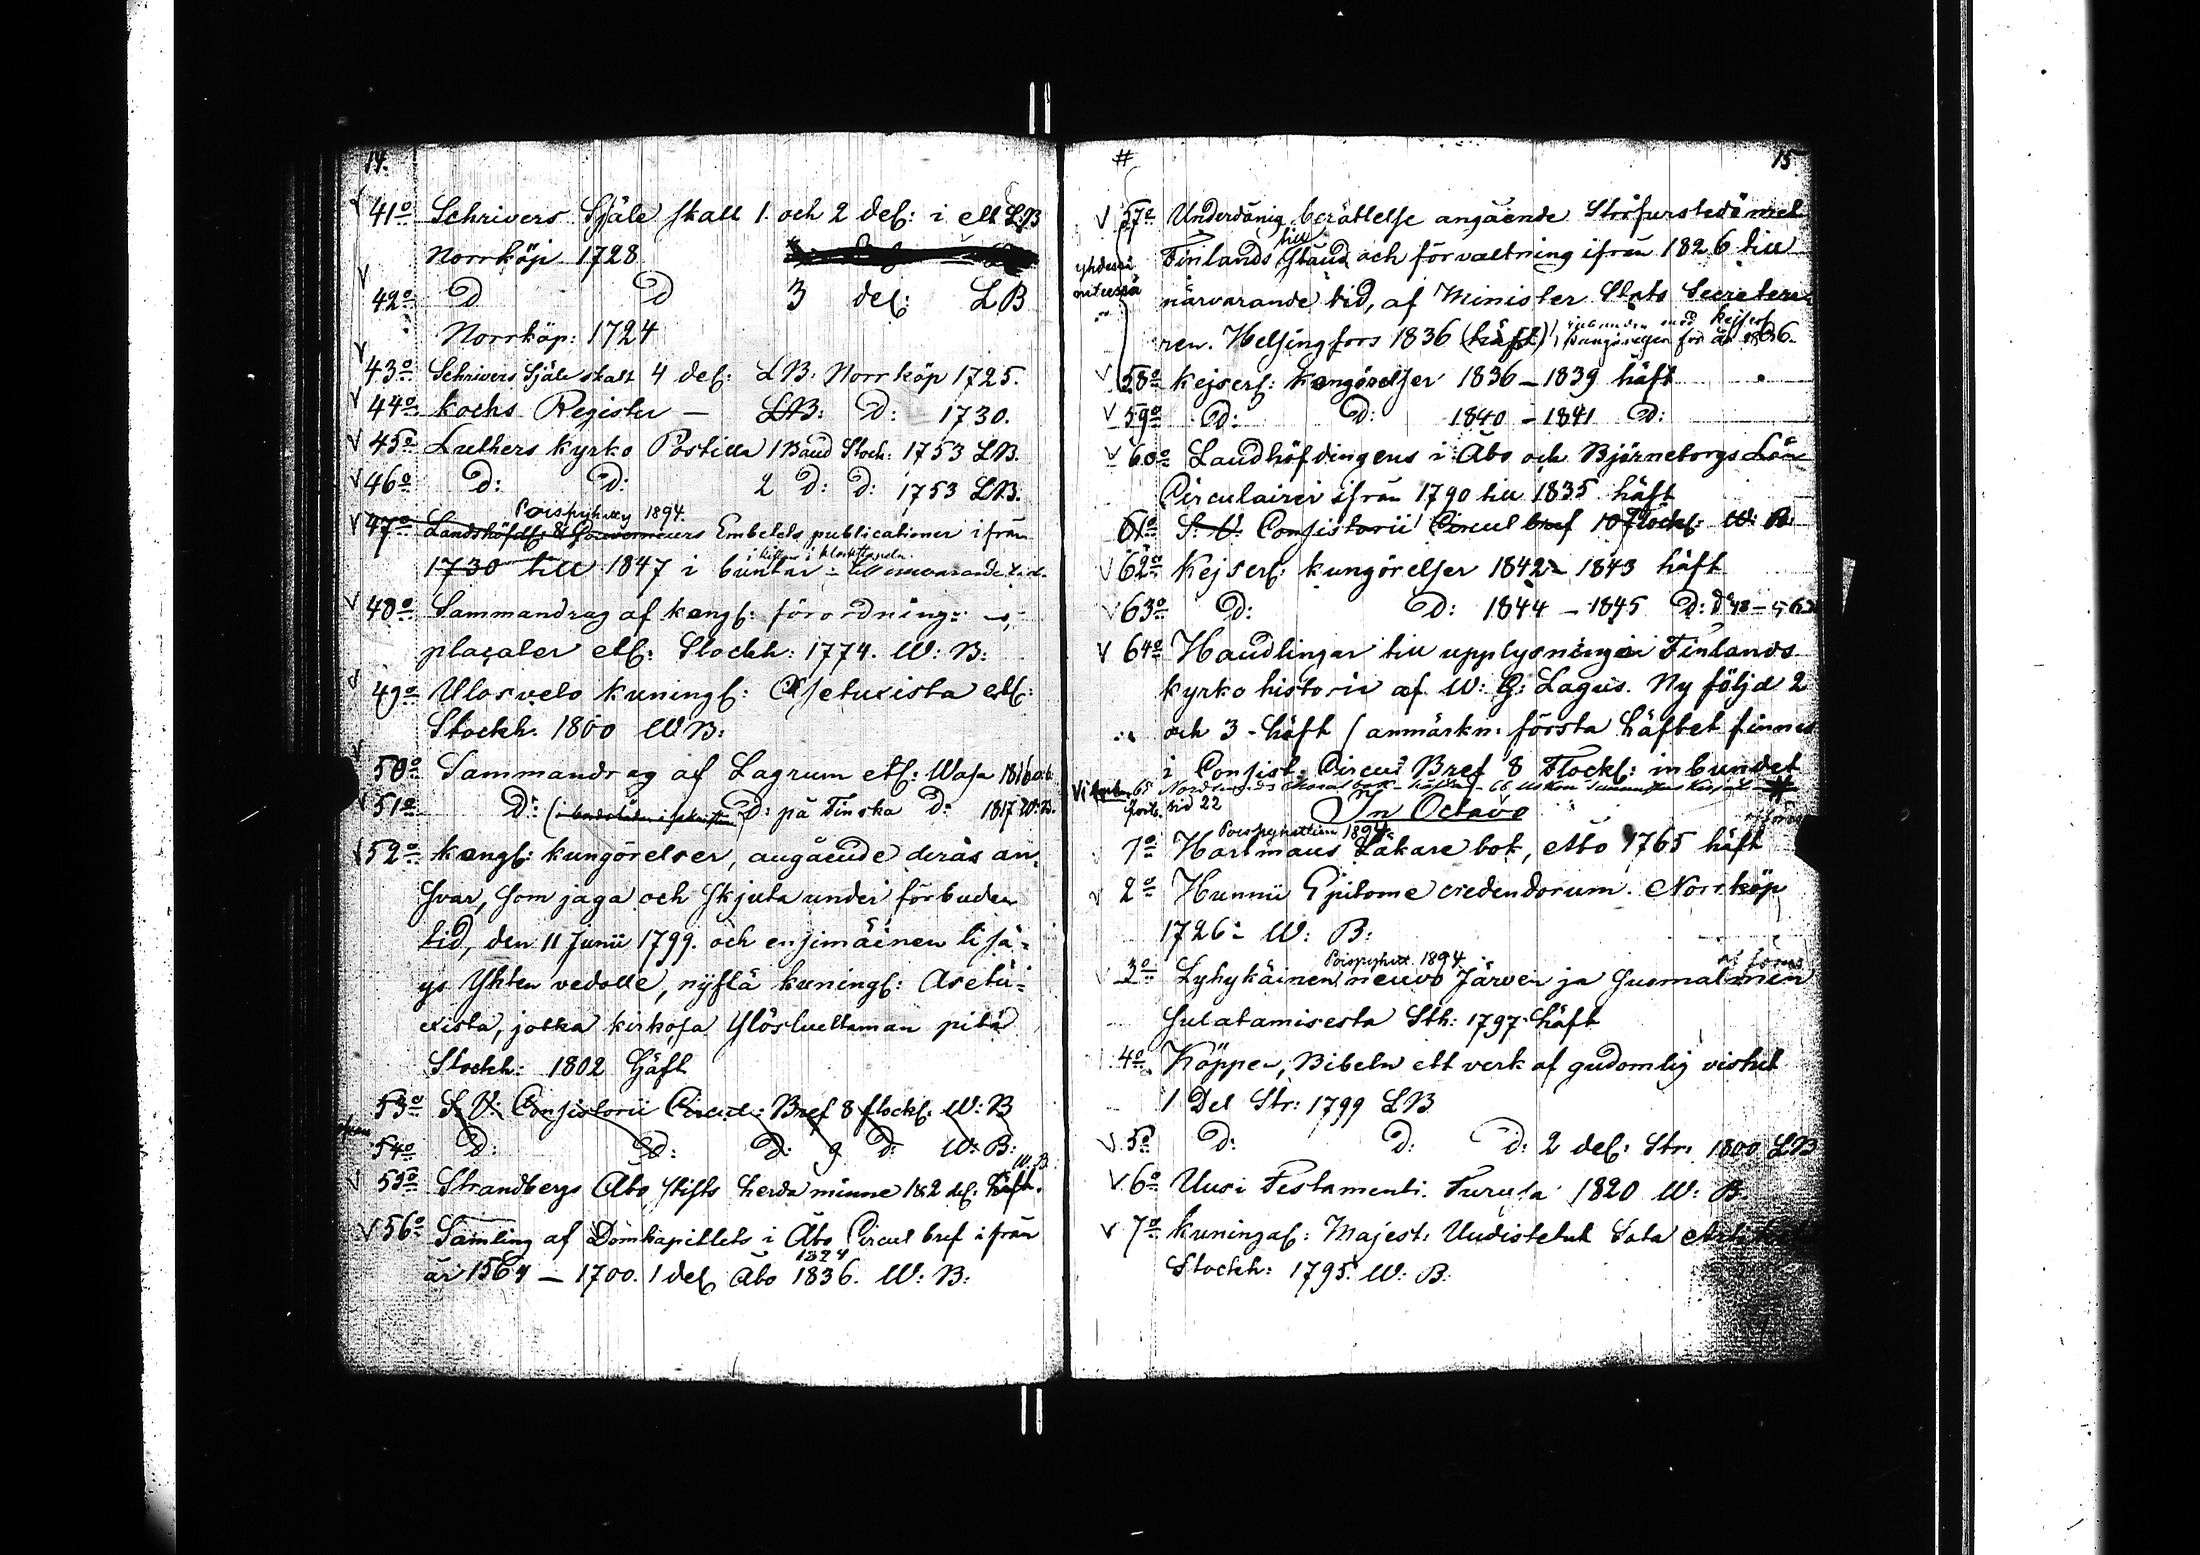 14.
41o Schrivers Själe skatt 1. och 2 del: i ett LB
Norrköp 1728
42o D D 3 del: LB
Norrköp: 1724
43o Schrivers Själe skatt 4 del: LB: Norrköp 1725.
44o Kochs Register — LB: D: 1730.
45o Luthers Kyrko Postilla 1 Band Stock: 1753 LB.
46o D: D: 2 D: D: 1753 LB.
Poispyhitty 1894.
47o Landshöfd: & Gouverneurs Embetets publicationer ifrån
1730 till 1847 i buntar – till
48o Sammandrag af kongl: förordning:
placater etc: Stockh: 1774. W: B:
49o Ulosvelo kuningl: Asetuxista etc:
Stockh. 1800 WB:
50o Sammandrag af Lagrum etc: Wasa 1816
51o D: D: på Finska D: 1817 W: B.
52o Kongl: kungörelser, angående deras an-
svar, som jaga och skjuta under förbuden
tid, den 11 Junii 1799. och ensimäinen lisä-
ys Yhten vedolle, nijstä kuningl: Asetu-
xista, jotka kirkosa Ylösluettaman pitä
Stockh: 1802 Häft
53o S. V: Consistorii Circul: Bref 8 flockl: W: B
54o D: D: D: 9 D: W: B:
W. B.
55o Strandbergs Åbo stifts herda minne 1 & 2 del: häft.
56o Samling af Domkapitlets i Åbo Circul bref ifrån
1824
år 1564 — 1700. 1 del Åbo 1836. W: B:
# 15
57o Underdånig berättelse angående Storfurstedömet
till
Finlands Stånd och förvaltning ifrån 1826 till
yhdessä
niteessä
närvarande tid, af Minister Stats Secretera-
inbunden med Kejserl
ren. Helsingfors 1836 (häft) kungörelser för år 1836.
58o Kejserl: Kungörelser 1836 – 1839 häft
59o D: D: 1840 – 1841 D:
60o Landhöfdingens i Åbo och Björneborgs Län
Circulairer ifrån 1790 till 1835 häft
61o S. V. Consistorii Circul bref 10 flockl: W: B.
62o Kejserl: kungörelser 1842 – 1843 häft
63o D: D: 1844 – 1845 D:
64o Handlingar till upplysning i Finlands
kyrko historie af W: G: Lagus. Ny följd 2
och 3 - häft / anmärkn: första häftet finnes
i Consist: Circul Bref 8 Flockl: inbundet
65
forts. sid 22
In Octavo
Poispyhittiin 1894.
1o Hartmans Läkare bok, Åbo 1765 häft
2o Hunnii Epitome credendorum. Norrköp
1726: W: B:
Poispyhitt. 1894.
3o Lyhykäinen neuvo Järven ja Suomalmin
Sulatamisesta Sth: 1797 häft
4o Köppen, Bibeln ett verk af gudomlig vishet
1 Del Str: 1799 LB
5o D: D: D: 2 del: Str: 1800 LB
6o Uusi Testamenti. Turusa 1820 W: B.
7o Kuningal: Majest: Uudistetut Sota
Stockh: 1795. W: B.